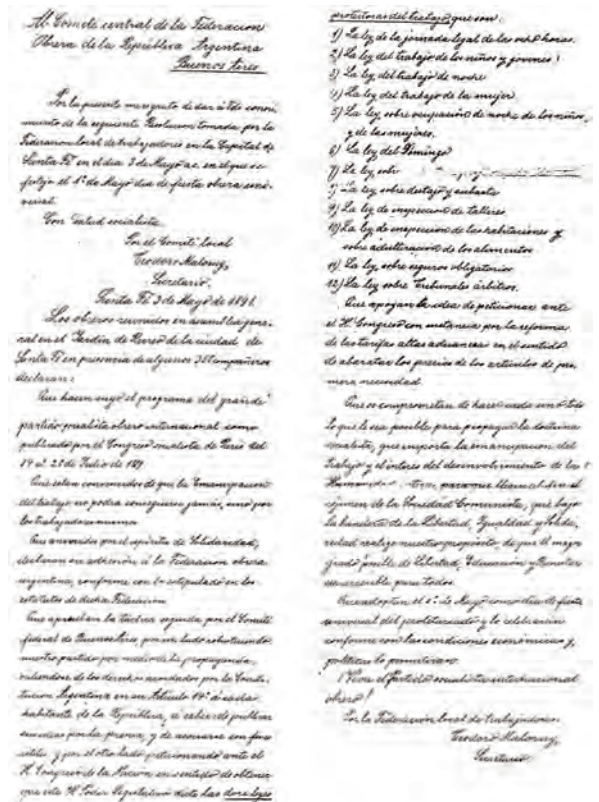 Al Comité central de la Federacion
Obrera de la República Argentina
Buenos Aires
Por la presente me permito de dar á Vds conoci-
miento de la siguiente Resolucion tomada por la
Federacion local de trabajadores en la Capital de
Santa Fé en el dia 3 de Mayo a.c. en el que se
festejo el 1º de Mayo dia de fiesta obrera uni-
versal.
Con Salud socialista
Por el Comité local
Teodoro Malorny,
Secretario.
Santa Fé, 3 de Mayo de 1891.
Los obreros reunidos en asamblea gene-
ral en el Jardin de Recreo de la ciudad de
Santa Fé en presencia de algunos 35 Compañeros
declaran:
Que hacen suyo el programa del grande
partido socialista obrero internacional como
publicado por el Congreso socialista de Paris del
14 al 21 de Julio de 189
Que estan convencidos de que la Emancipacion
del trabajo no podra conseguirse jamás, sino por
los trabajadores mismos
Que animados por el espiritu de Solidaridad,
declaran su adhesion á la Federacion obrera
argentina, conforme con lo estipulado en los
estatutos de dicha Federacion
Que aprueban la táctica seguida por el Comité
federal de Buenos Aires, por un lado robusteciendo
nuestro partido por medio de la propaganda,
valiendose de los derechos acordados por la Consti-
tucion Argentina en su Articulo 14º á cada
habitante de la República, á saber de publicar
sus ideas por la prensa, y de asociarse con fines
utiles, y por el otro lado peticionando ante el
H. Congreso de la Nacion en sentido de obtener
que este H. Poder Legislativo dicte las doce leyes
protectoras del trabajo que son:
1) La ley de la jornada legal de las ocho horas.
2) La ley del trabajo de los niños y jovenes
3) La ley del trabajo de noche
4) La ley del trabajo de la mujer
5) La ley sobre ocupacion de noche de los niños,
y de las mujeres.
6) La ley del Domingo
7) La ley sobre
La ley sobre destajo y subasta
9) La ley de inspeccion de talleres
10) La ley de inspeccion de las habitaciones y
sobre adulteracion de los alimentos
11) La ley sobre seguros obligatorios
12) La ley sobre Tribunales árbitros.
Que apoyan la idea de peticionar ante
el H. Congreso con instancia por la reforma
de las tarifas altas aduaneras en el sentido
de abaratar los precios de los articulos de pri-
mera necesidad.
Que se comprometen de hacer cada uno todo
lo que le sea posible para propagar la doctrina
socialista, que importa la emancipacion del
Trabajo y el interes del desenvolvimiento de la
Humanidad para que llegue el dia el
régimen de la Sociedad Comunista, que bajo
la bandera de la Libertad, Igualdad y Solida-
ridad realize nuestro propósito, de que el mayor
grado posible de Libertad, Educacion y Bienestar
sea accesible para todos.
Que adoptan el 1º de Mayo como dia de fiesta
universal del proletariado y lo celebrarán
conforme con las condiciones económicas y
politicas lo permitieran.
¡Viva el Partido socialista internacional
obrero!
Por la Federacion local de trabajadores
Teodoro Malorny,
Secretario